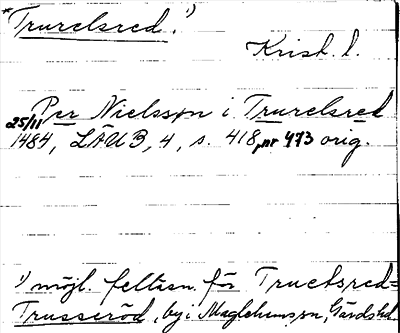 *Trurelsred.¹⁾
Krish. l.
Per Nielsson i Trurelsred
25/11 1484, LÄUB, 4, s. 418, nr 473 orig.
¹⁾ möjl. felläsn. för Tructsred =
Trusseröd, by i Maglehems sn, Gärds hd.